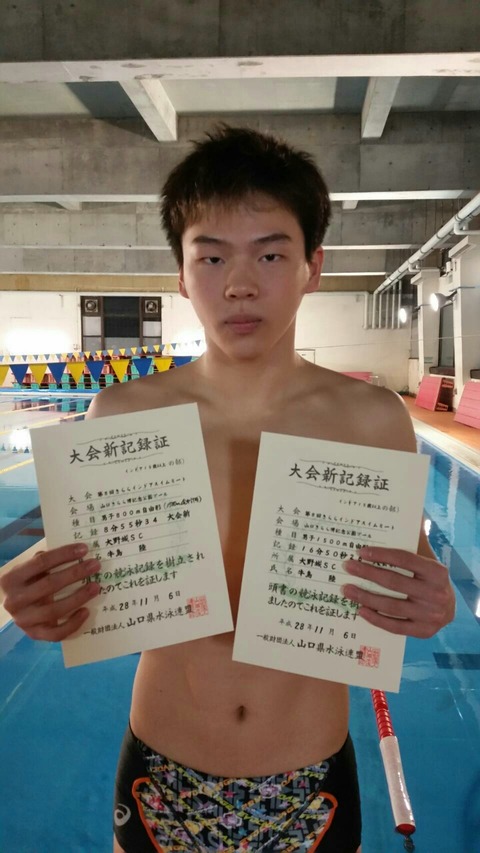 大会新記録証
大会 第8回きららインドアスイムミート
会場 山口きらら博記念公園プール
種目 男子800m自由形
記録 8分55秒34 大会新
所属 大野城SC
氏名 牛島 陸
頭書の競泳記録を樹立され
ましたのでこれを証します
平成28年11月6日
一般財団法人 山口県水泳連盟
大会新記録証
大会 第8回きららインドアスイムミート
会場 山口きらら博記念公園プール
種目 男子1500m自由形
記録 16分50秒
所属 大野城SC
氏名 牛島 陸
頭書の競泳記録を樹
ましたのでこれを証します
平成28年11月6日
一般財団法人 山口県水泳連盟
asics